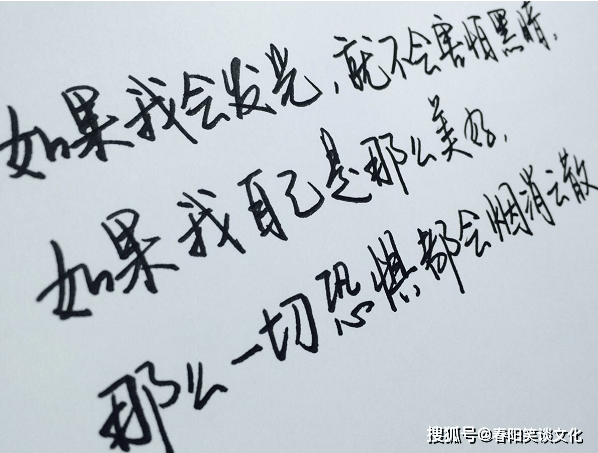 如果我会发光,就不会害怕黑暗,
如果我自己是那么美好,
那么一切恐惧都会烟消云散
搜狐号@春阳笑谈文化